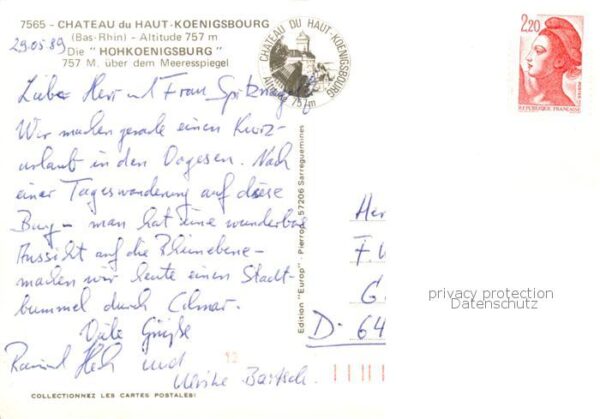 7565 - CHATEAU du HAUT-KOENIGSBOURG
(Bas-Rhin) - Altitude 757 m
29.05.89
Die "HOHKOENIGSBURG"
757 M. über dem Meeresspiegel
CHATEAU DU HAUT-KOENIGSBOURG
Altitude 757 m
2,20
POSTES
REPUBLIQUE FRANÇAISE
Lieber Herr und Frau Spitznagel
Wir machen gerade einen Kurz-
urlaub in den Vogesen. Nach
einer Tageswanderung auf diese
Burg - man hat eine wunderbare
Aussicht auf die Rheinebene -
machen wir heute einen Stadt-
bummel durch Colmar.
Viele Grüße
und
Ulrike Bartsch.
Edition "Europ" - Pierron - 57206 Sarreguemines
He
D-64
privacy protection
Datenschutz
12
COLLECTIONNEZ LES CARTES POSTALES!